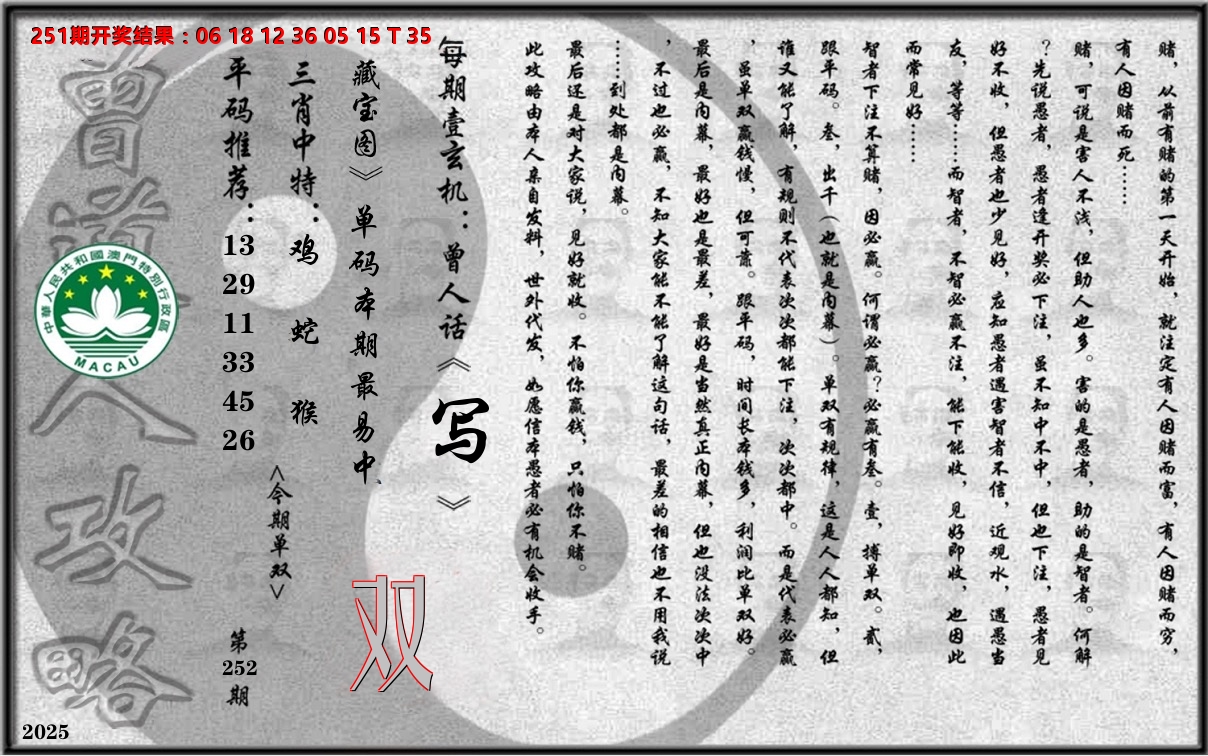 251期开奖结果：06 18 12 36 05 15 T 35
赌，从前有赌的第一天开始，就注定有人因赌而富，有人因赌而穷，
有人因赌而死……
赌，可说是害人不浅，但助人也多。害的是愚者，助的是智者。何解
？先说愚者，愚者逢开奖必下注，虽不知中不中，但也下注，愚者见
好不收，但愚者也少见好，应知愚者遇害智者不信，近观水，遇愚当
友，等等……而智者，不智必赢不注，能下能收，见好即收，也因此
而常见好……
智者下注不算赌，因必赢。何谓必赢？必赢有叁。壹，搏单双。贰，
跟平码。叁，出千（也就是内幕）。单双有规律，这是人人都知，但
谁又能了解，有规则不代表次次都能下注，次次都中。而是代表必赢
，虽单双赢钱慢，但可靠。跟平码，时间长本钱多，利润比单双好。
最后是内幕，最好也是最差，最好是当然真正内幕，但也没法次次中
，不过也必赢，不知大家能不能了解这句话，最差的相信也不用我说
……到处都是内幕。
最后还是对大家说，见好就收。不怕你赢钱，只怕你不赌。
此攻略由本人亲自发料，世外代发，如愿信本愚者必有机会收手。
每期壹玄机：曾人话《写》
藏宝图》单码本期最易中、
双
三肖中特：鸡 蛇 猴
<今期单双>
平码推荐：13 29 11 33 45 26
第252期
曾道人攻略
中華人民共和國澳門特別行政區
MACAU
2025